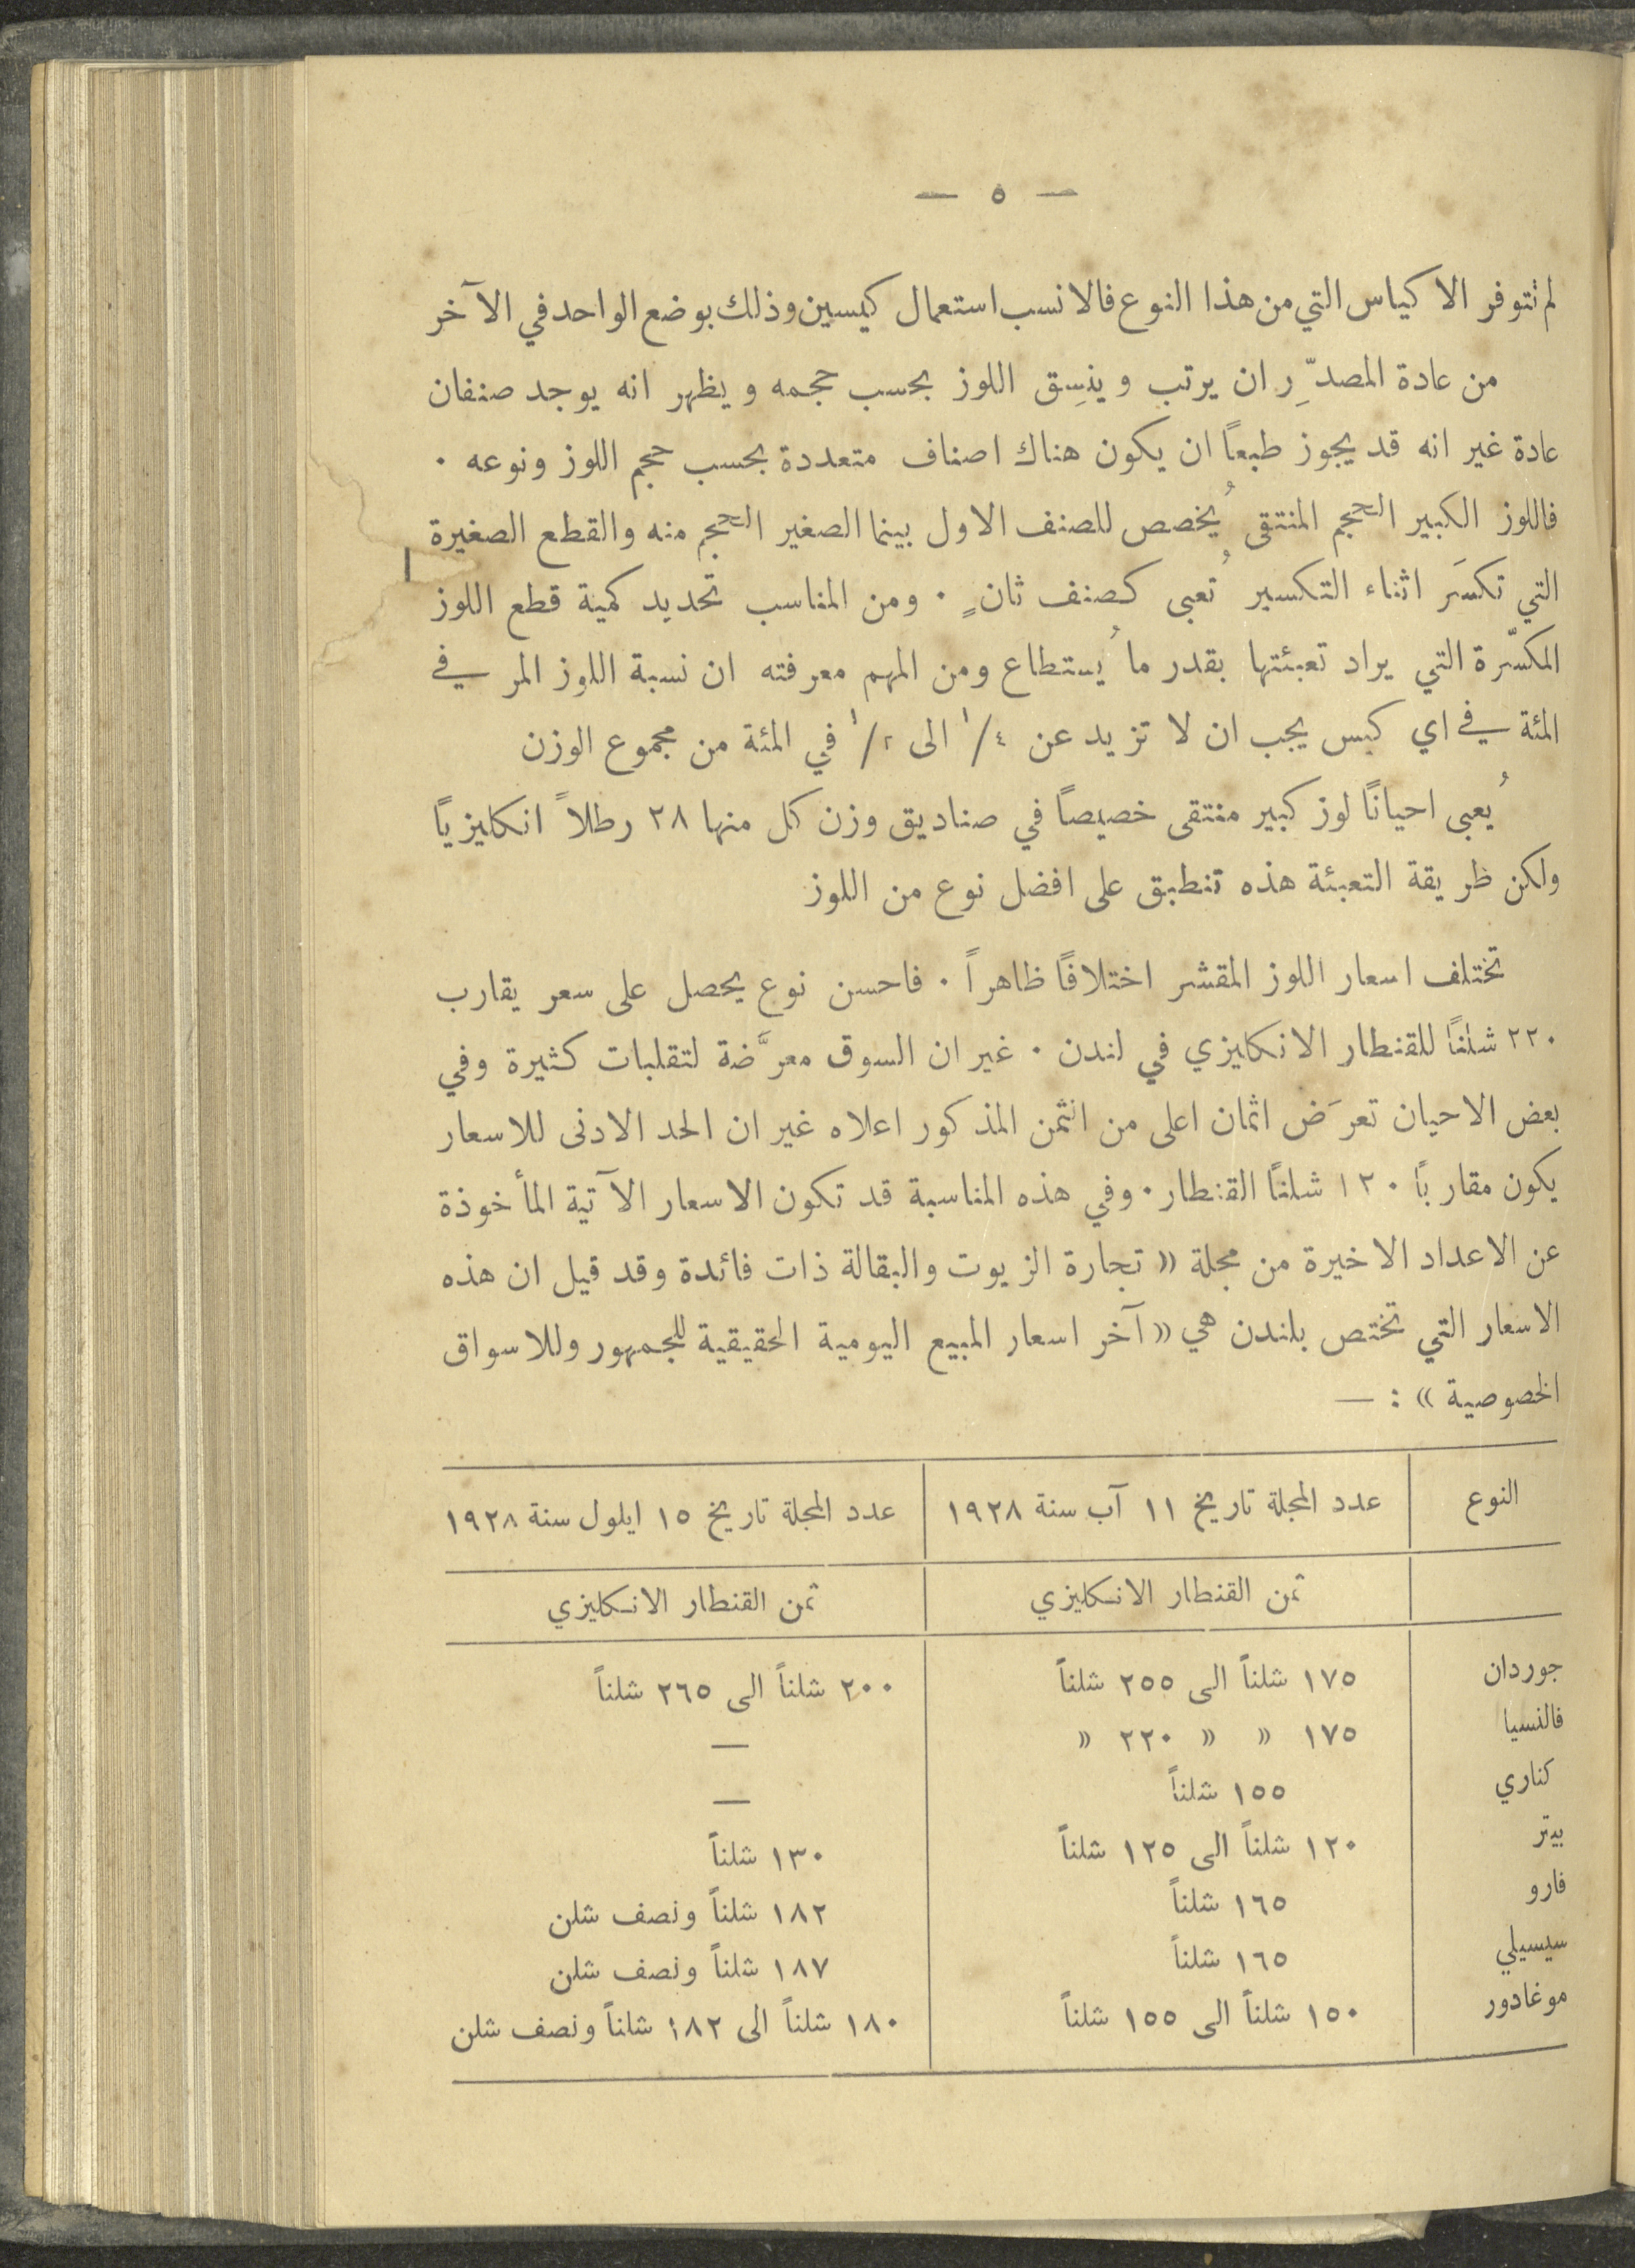 — ٥ —
لم نتوفر الاكياس التي من هذا النوع فالانسب استعمال كيسين وذلك بوضع الواحد في الآخر
من عادة المصدِّر ان يرتب وينسِق اللوز بحسب حجمه ويظهر انه يوجد صنفان
عادة غير انه قد يجوز طبعاً ان يكون هناك اصناف متعددة بحسب حجم اللوز ونوعه ٠
فاللوز الكبير الحجم المنتقى يُخصص للصنف الاول بينما الصغير الحجم منه والقطع الصغيرة
التي تكسَر اثناء التكسير تُعبى كصنف ثانٍ ٠ ومن المناسب تحديد كمية قطع اللوز
المكسّرة التي يراد تعبئتها بقدر ما يُستطاع ومن المهم معرفته ان نسبة اللوز المر في
المئة في اي كيس يجب ان لا تزيد عن ١/٤ الى ١/٢ في المئة من مجموع الوزن
يُعبى احياناً لوز كبير منتقى خصيصاً في صناديق وزن كل منها ٢٨ رطلاً انكليزياً
ولكن طريقة التعبئة هذه تنطبق على افضل نوع من اللوز
تختلف اسعار اللوز المقشر اختلافاً ظاهراً ٠ فاحسن نوع يحصل على سعر يقارب
٢٢٠ شلناً للقنطار الانكليزي في لندن ٠ غير ان السوق معرَّضة لتقلبات كثيرة وفي
بعض الاحيان تعرَض اثمان اعلى من الثمن المذكور اعلاه غير ان الحد الادنى للاسعار
يكون مقارباً ١٢٠ شلناً القنطار ٠ وفي هذه المناسبة قد تكون الاسعار الآتية المأخوذة
عن الاعداد الاخيرة من مجلة « تجارة الزيوت والبقالة ذات فائدة وقد قيل ان هذه
الاسعار التي تختص بلندن هي « آخر اسعار المبيع اليومية الحقيقية للجمهور وللاسواق
الخصوصية » : —
النوع عدد المجلة تاريخ ١١ آب سنة ١٩٢٨ عدد المجلة تاريخ ١٥ ايلول سنة ١٩٢٨
ثمن القنطار الانكليزي ثمن القنطار الانكليزي
جوردان ١٧٥ شلناً الى ٢٥٥ شلناً ٢٠٠ شلناً الى ٢٦٥ شلناً
فالنسيا ١٧٥ » » ٢٢٠ » —
كناري ١٥٥ شلناً —
بيتر ١٢٠ شلناً الى ١٢٥ شلناً ١٣٠ شلناً
فارو ١٦٥ شلناً ١٨٢ شلناً ونصف شلن
سيسيلي ١٦٥ شلناً ١٨٧ شلناً ونصف شلن
موغادور ١٥٠ شلناً الى ١٥٥ شلناً ١٨٠ شلناً الى ١٨٢ شلناً ونصف شلن